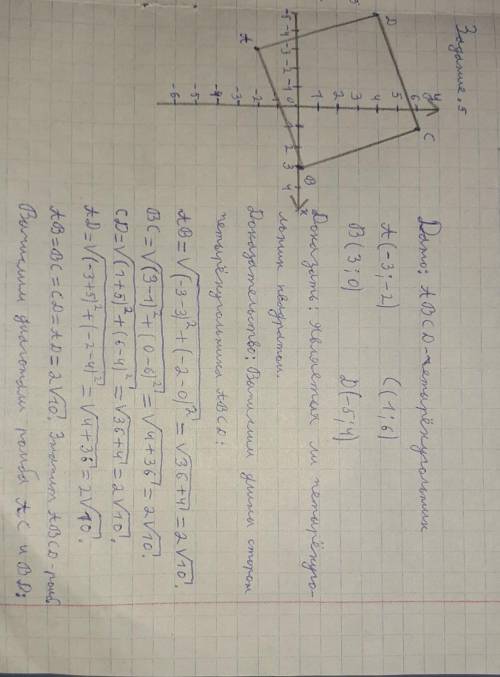 Задание. 5
Дано: ABCD-четырёхугольник
A(-3;-2) C(1;6)
B(3;0) D(-5;4)
Доказать: является ли четырёхуго-
льник квадратом
Доказательство: Вычислим длины сторон
четырёхугольника ABCD:
AB=√(-3-3)²+(-2-0)²=√36+4=2√10.
BC=√(3-1)²+(0-6)²=√4+36=2√10.
CD=√(1+5)²+(6-4)²=√36+4=2√10.
AD=√(-3+5)²+(-2-4)²=√4+36=2√10.
AB=BC=CD=AD=2√10. Значит ABCD-ромб
Вычислим диагонали ромба AC и BD:
y
6
5
4
3
2
1
0
-1
-2
-3
-4
-5
-6
-5 -4 -3 -2 -1 1 2 3 4 x
A B C D